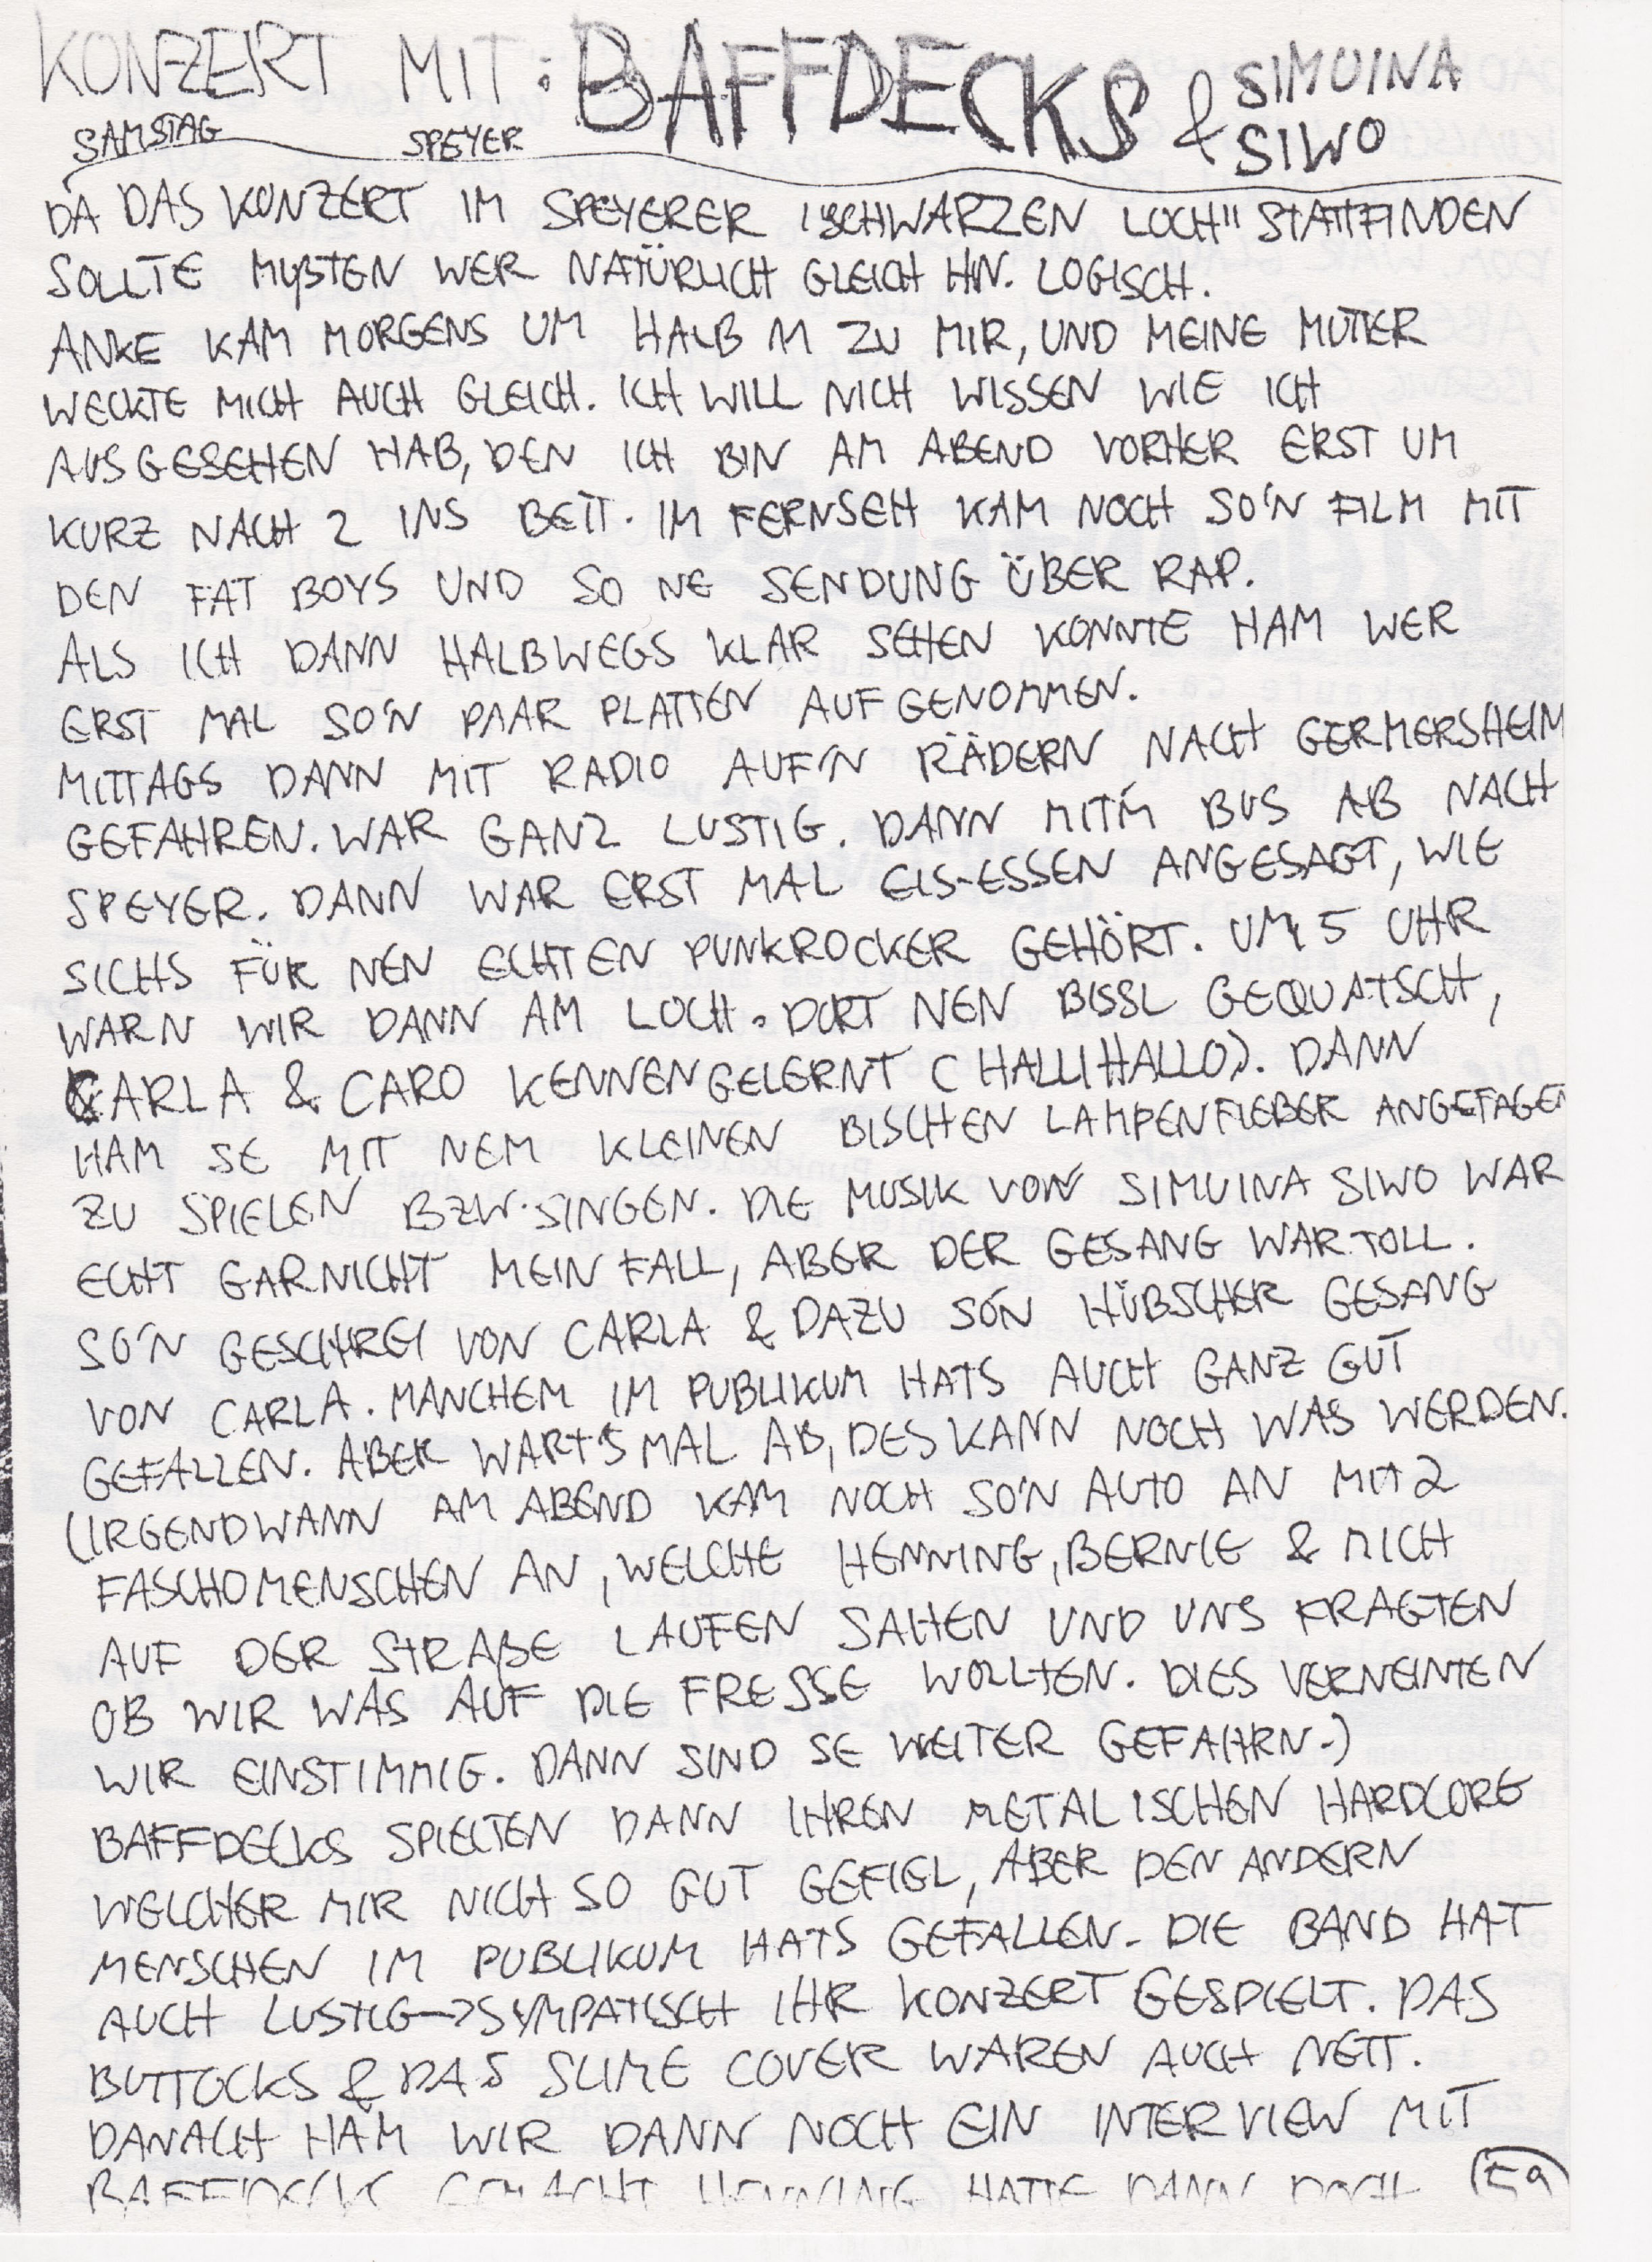 KONZERT MIT: BAFFDECKS & SIMUINA SIWO
SAMSTAG SPEYER
DA DAS KONZERT IM SPEYERER "SCHWARZEN LOCH" STATTFINDEN
SOLLTE MUßTEN WER NATÜRLICH GLEICH HIN. LOGISCH.
ANKE KAM MORGENS UM HALB 11 ZU MIR, UND MEINE MUTTER
WECKTE MICH AUCH GLEICH. ICH WILL NICH WISSEN WIE ICH
AUSGESEHEN HAB, DEN ICH BIN AM ABEND VORHER ERST UM
KURZ NACH 2 INS BETT. IM FERNSEH KAM NOCH SO'N FILM MIT
DEN FAT BOYS UND SO NE SENDUNG ÜBER RAP.
ALS ICH DANN HALBWEGS KLAR SEHEN KONNTE HAM WER
ERST MAL SO'N PAAR PLATTEN AUFGENOMMEN.
MITTAGS DANN MIT RADIO AUF'N RÄDERN NACH GERMERSHEIM
GEFAHREN. WAR GANZ LUSTIG. DANN MIT'M BUS AB NACH
SPEYER. DANN WAR ERST MAL EIS-ESSEN ANGESAGT, WIE
SICHS FÜR NEN ECHTEN PUNKROCKER GEHÖRT. UM 5 UHR
WARN WIR DANN AM LOCH. DORT NEN BISSL GEQUATSCH,
CARLA & CARO KENNENGELERNT (HALLIHALLO). DANN
HAM SE MIT NEM KLEINEN BISCHEN LAMPENFIEBER ANGEFAGEN
ZU SPIELEN BZW. SINGEN. DIE MUSIK VON SIMUINA SIWO WAR
ECHT GARNICHT MEIN FALL, ABER DER GESANG WAR TOLL.
SO'N GESCHREI VON CARLA & DAZU SO'N HÜBSCHER GESANG
VON CARLA. MANCHEM IM PUBLIKUM HATS AUCH GANZ GUT
GEFALLEN. ABER WART'S MAL AB, DES KANN NOCH WAS WERDEN.
(IRGENDWANN AM ABEND KAM NOCH SO'N AUTO AN MIT 2
FASCHOMENSCHEN AN, WELCHE HENNING, BERNIE & MICH
AUF DER STRAßE LAUFEN SAHEN UND UNS FRAGTEN
OB WIR WAS AUF DIE FRESSE WOLLTEN. DIES VERNEINTEN
WIR EINSTIMMIG. DANN SIND SE WEITER GEFAHRN.)
BAFFDECKS SPIELTEN DANN IHREN METALISCHEN HARDCORE
WELCHER MIR NICH SO GUT GEFIEL, ABER DEN ANDERN
MENSCHEN IM PUBLIKUM HATS GEFALLEN. DIE BAND HAT
AUCH LUSTIG->SYMPATISCH IHR KONZERT GESPIELT. DAS
BUTTOCKS & DAS SLIME COVER WAREN AUCH NETT.
DANACH HAM WIR DANN NOCH EIN INTERVIEW MIT
BAFFDECKS GEMACHT HENNING HATTE DANN